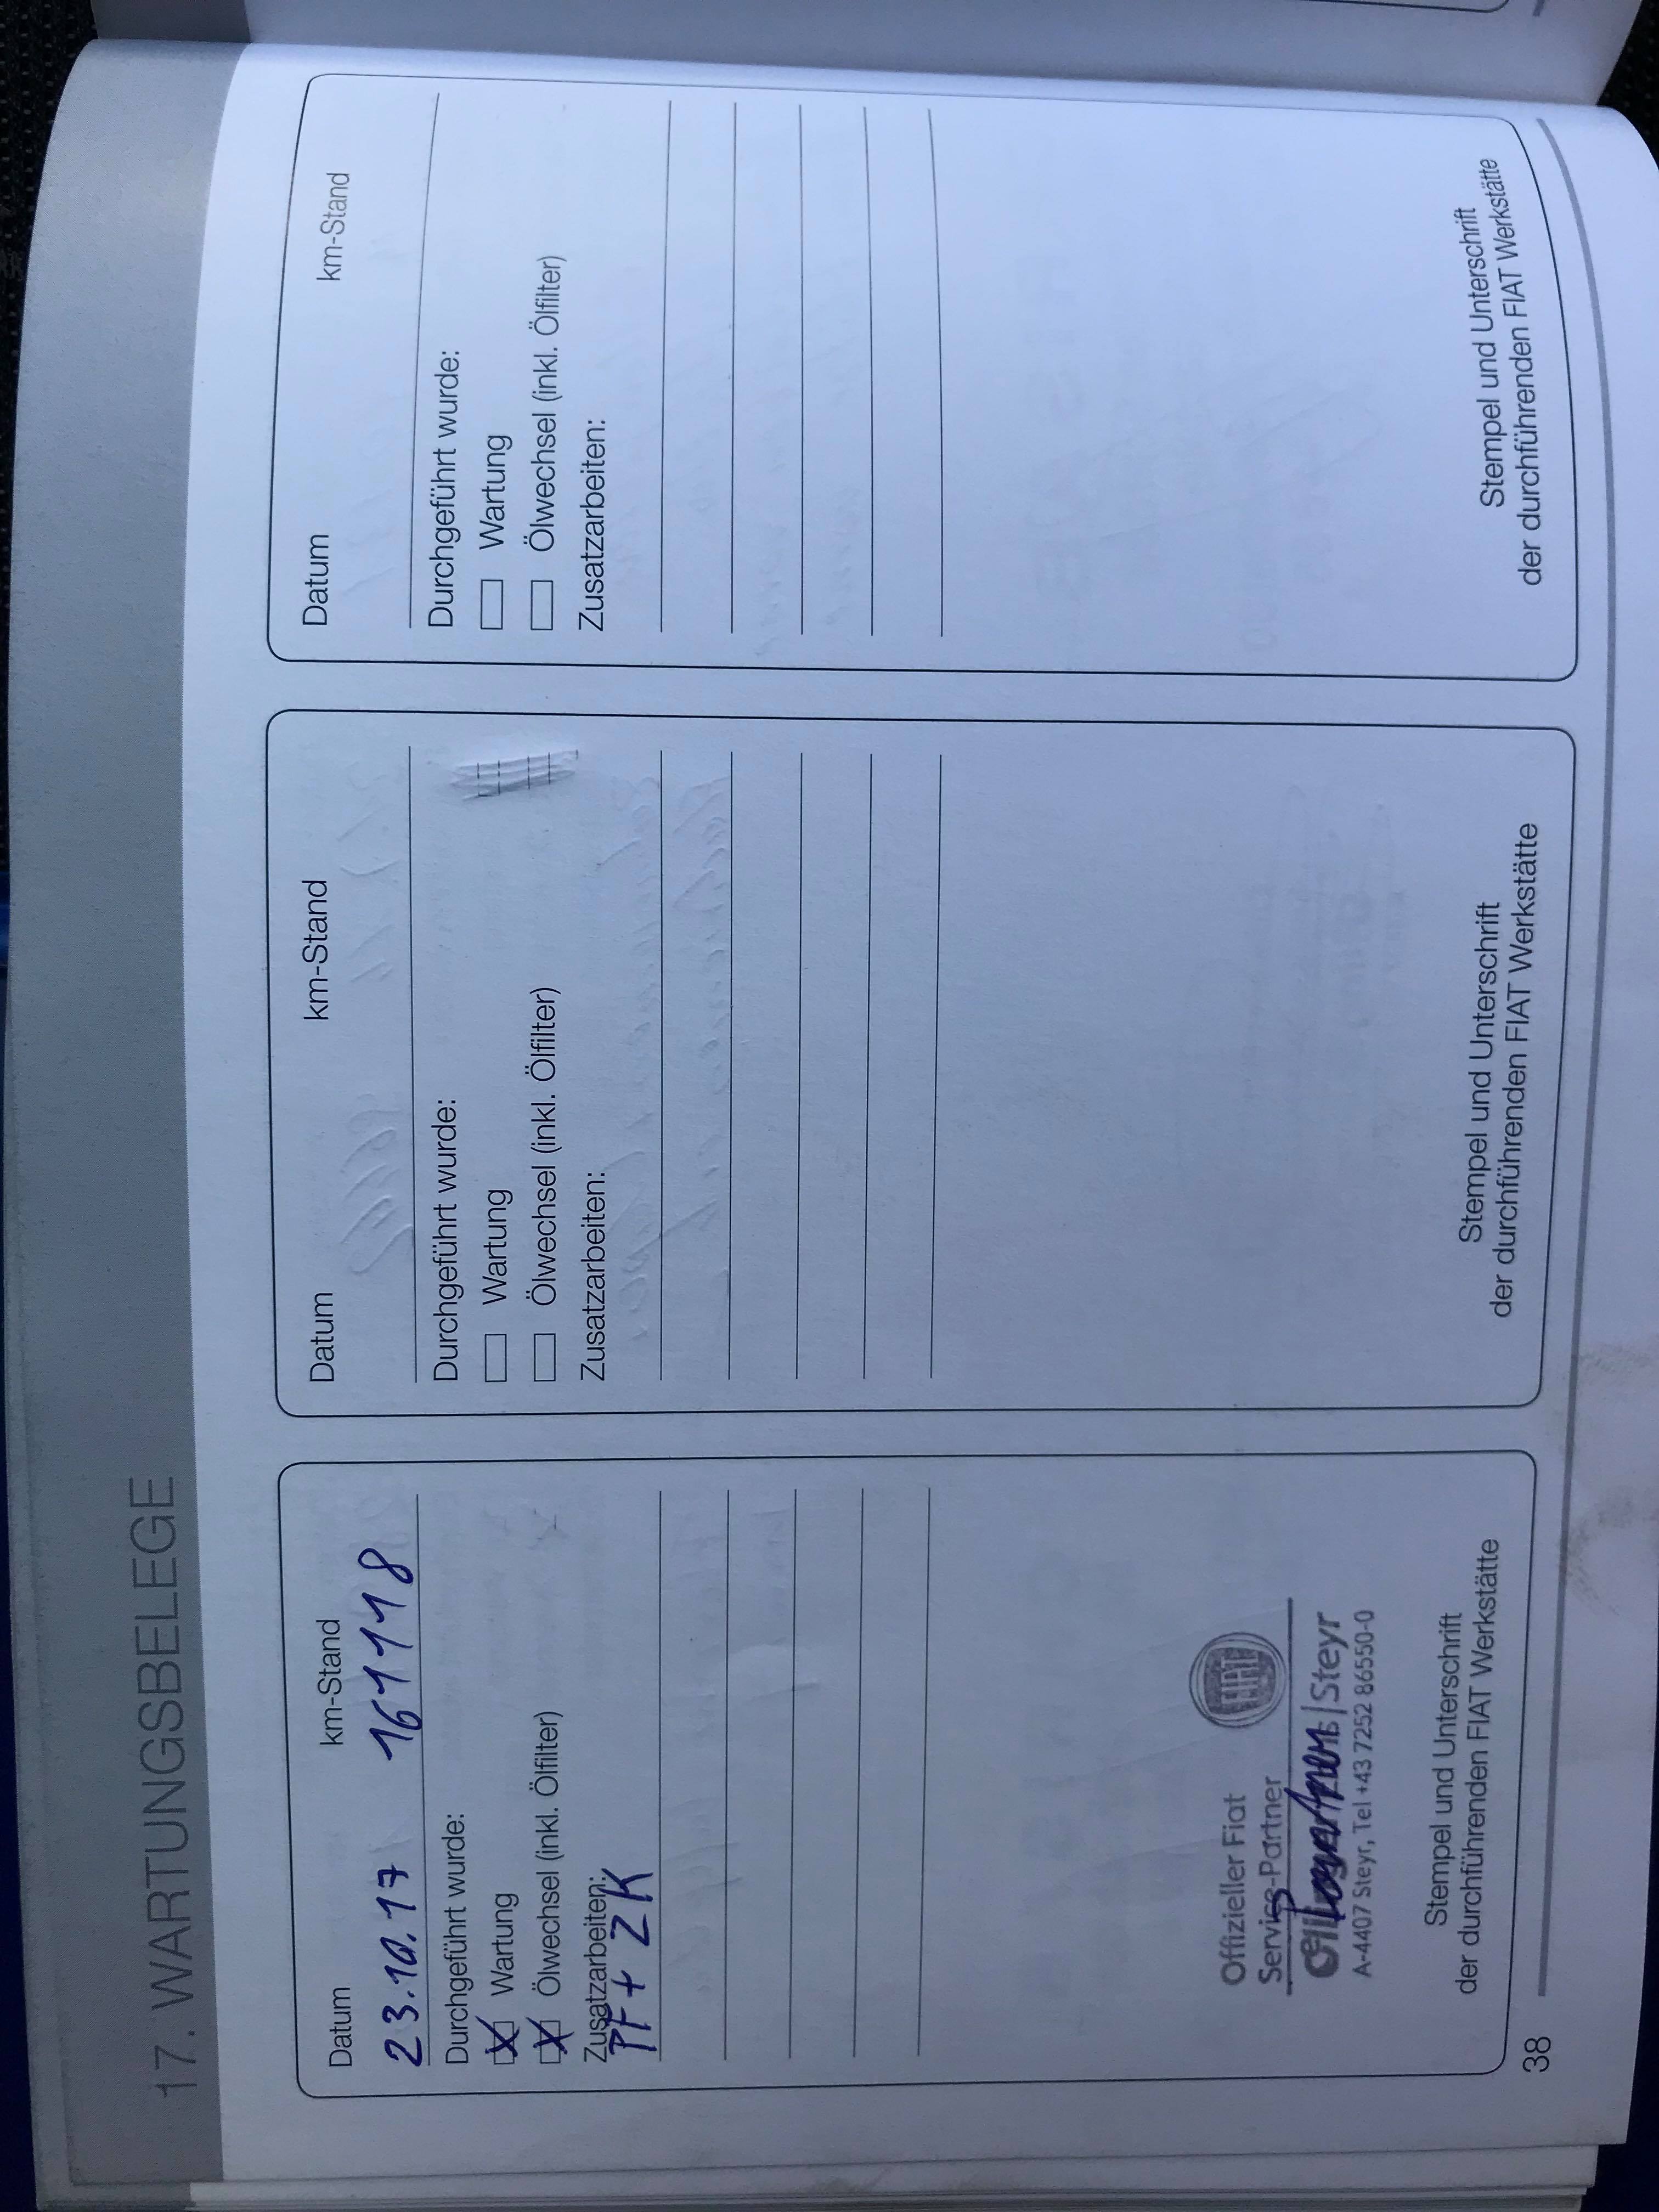 17. WARTUNGSBELEGE
Datum km-Stand
23.10.17 161118
Durchgeführt wurde:
Wartung
Ölwechsel (inkl. Ölfilter)
Zusatzarbeiten:
PF + ZK
Offizieller Fiat
Service-Partner
FIAT
Steyr
A-4407 Steyr, Tel +43 7252 86550-0
Stempel und Unterschrift
der durchführenden FIAT Werkstätte
Datum km-Stand
Durchgeführt wurde:
Wartung
Ölwechsel (inkl. Ölfilter)
Zusatzarbeiten:
Stempel und Unterschrift
der durchführenden FIAT Werkstätte
Datum km-Stand
Durchgeführt wurde:
Wartung
Ölwechsel (inkl. Ölfilter)
Zusatzarbeiten:
Stempel und Unterschrift
der durchführenden FIAT Werkstätte
38